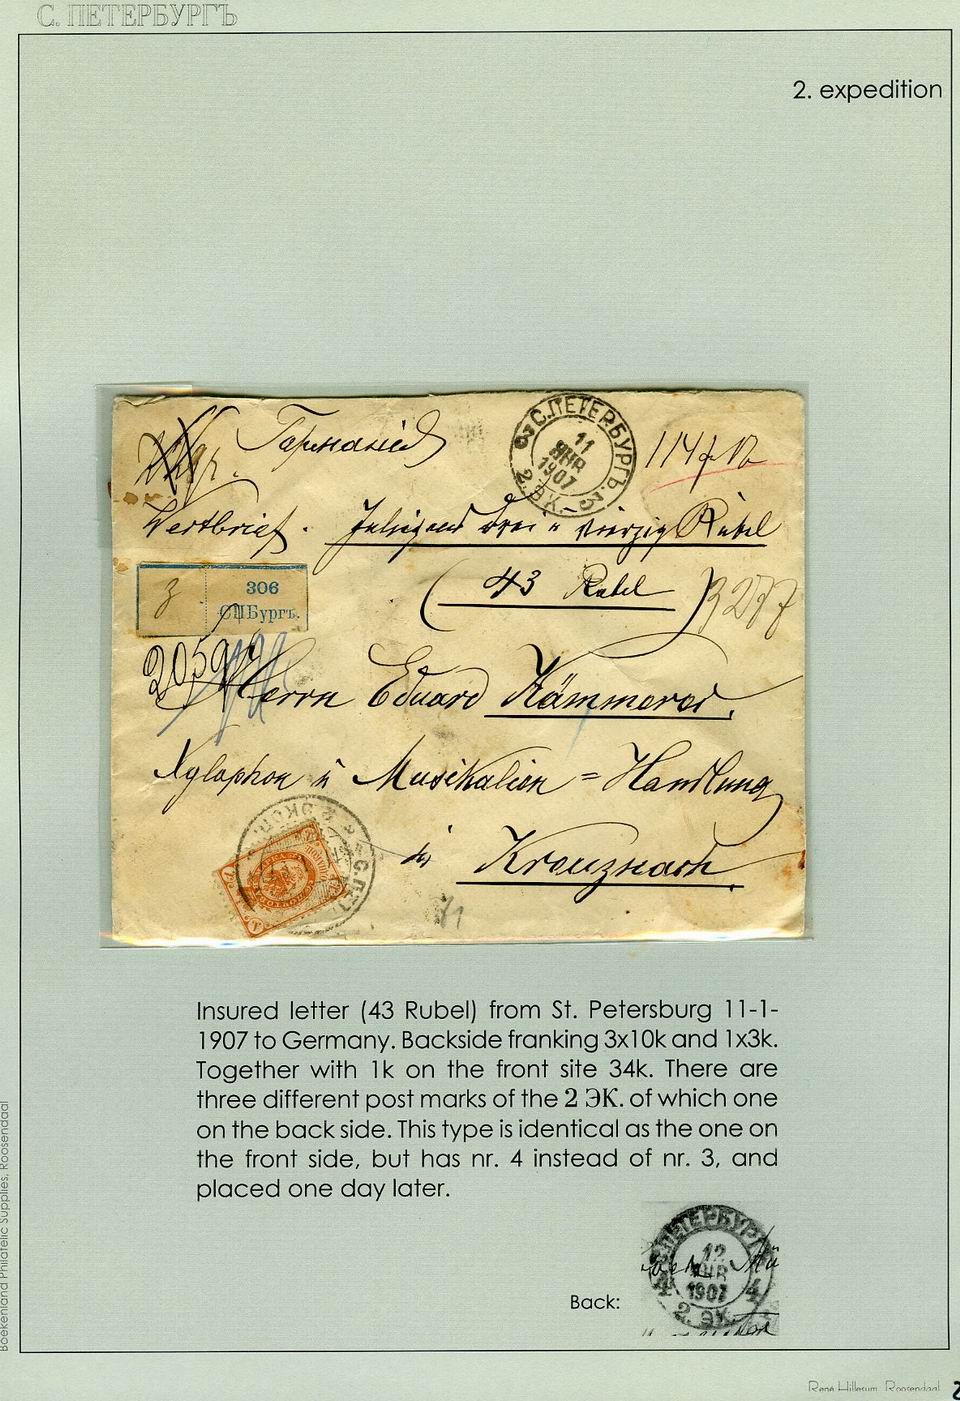 С. ПЕТЕРБУРГЪ
2. expedition
Германія
С.ПЕТЕРБУРГЪ.
3
11
ЯНВ
1907
2. ЭК.
3
Wertbrief.
vierzig Rubel
(43 Rubel)
3277
З
306
СПБургъ.
205gr
Herrn Eduard Kämmerer,
Xylophon u Musikalien = Handlung
in Kreuznach.
71
Insured letter (43 Rubel) from St. Petersburg 11-1-
1907 to Germany. Backside franking 3x10k and 1x3k.
Together with 1k on the front site 34k. There are
three different post marks of the 2 ЭК. of which one
on the back side. This type is identical as the one on
the front side, but has nr. 4 instead of nr. 3, and
placed one day later.
Back:
С.ПЕТЕРБУРГЪ
12
ЯНВ
1907
4 4
2. ЭК.
Boekenland Philatelic Supplies, Roosendaal
René Hillesum, Roosendaal